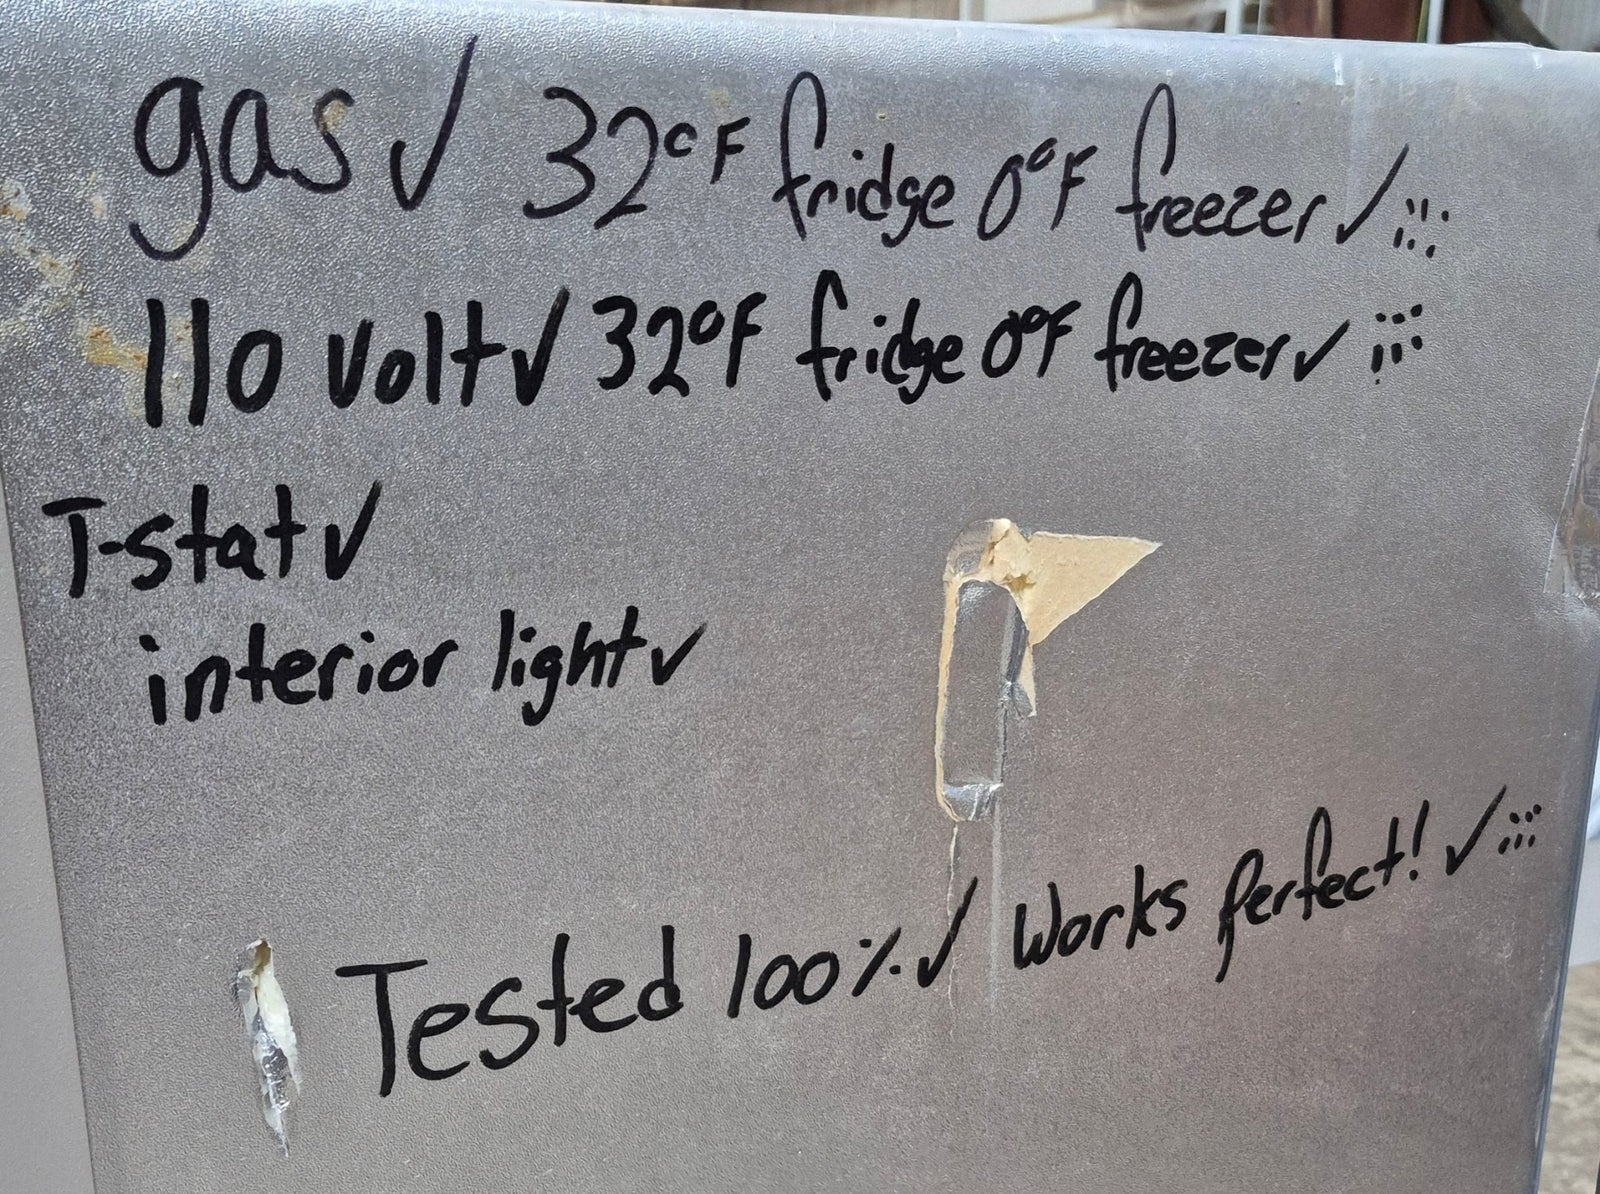 gas ✓ 32°F fridge 0°F freezer ✓
110 volt ✓ 32°F fridge 0°F freezer ✓
T-stat ✓
interior light ✓
Tested 100% ✓ Works perfect! ✓